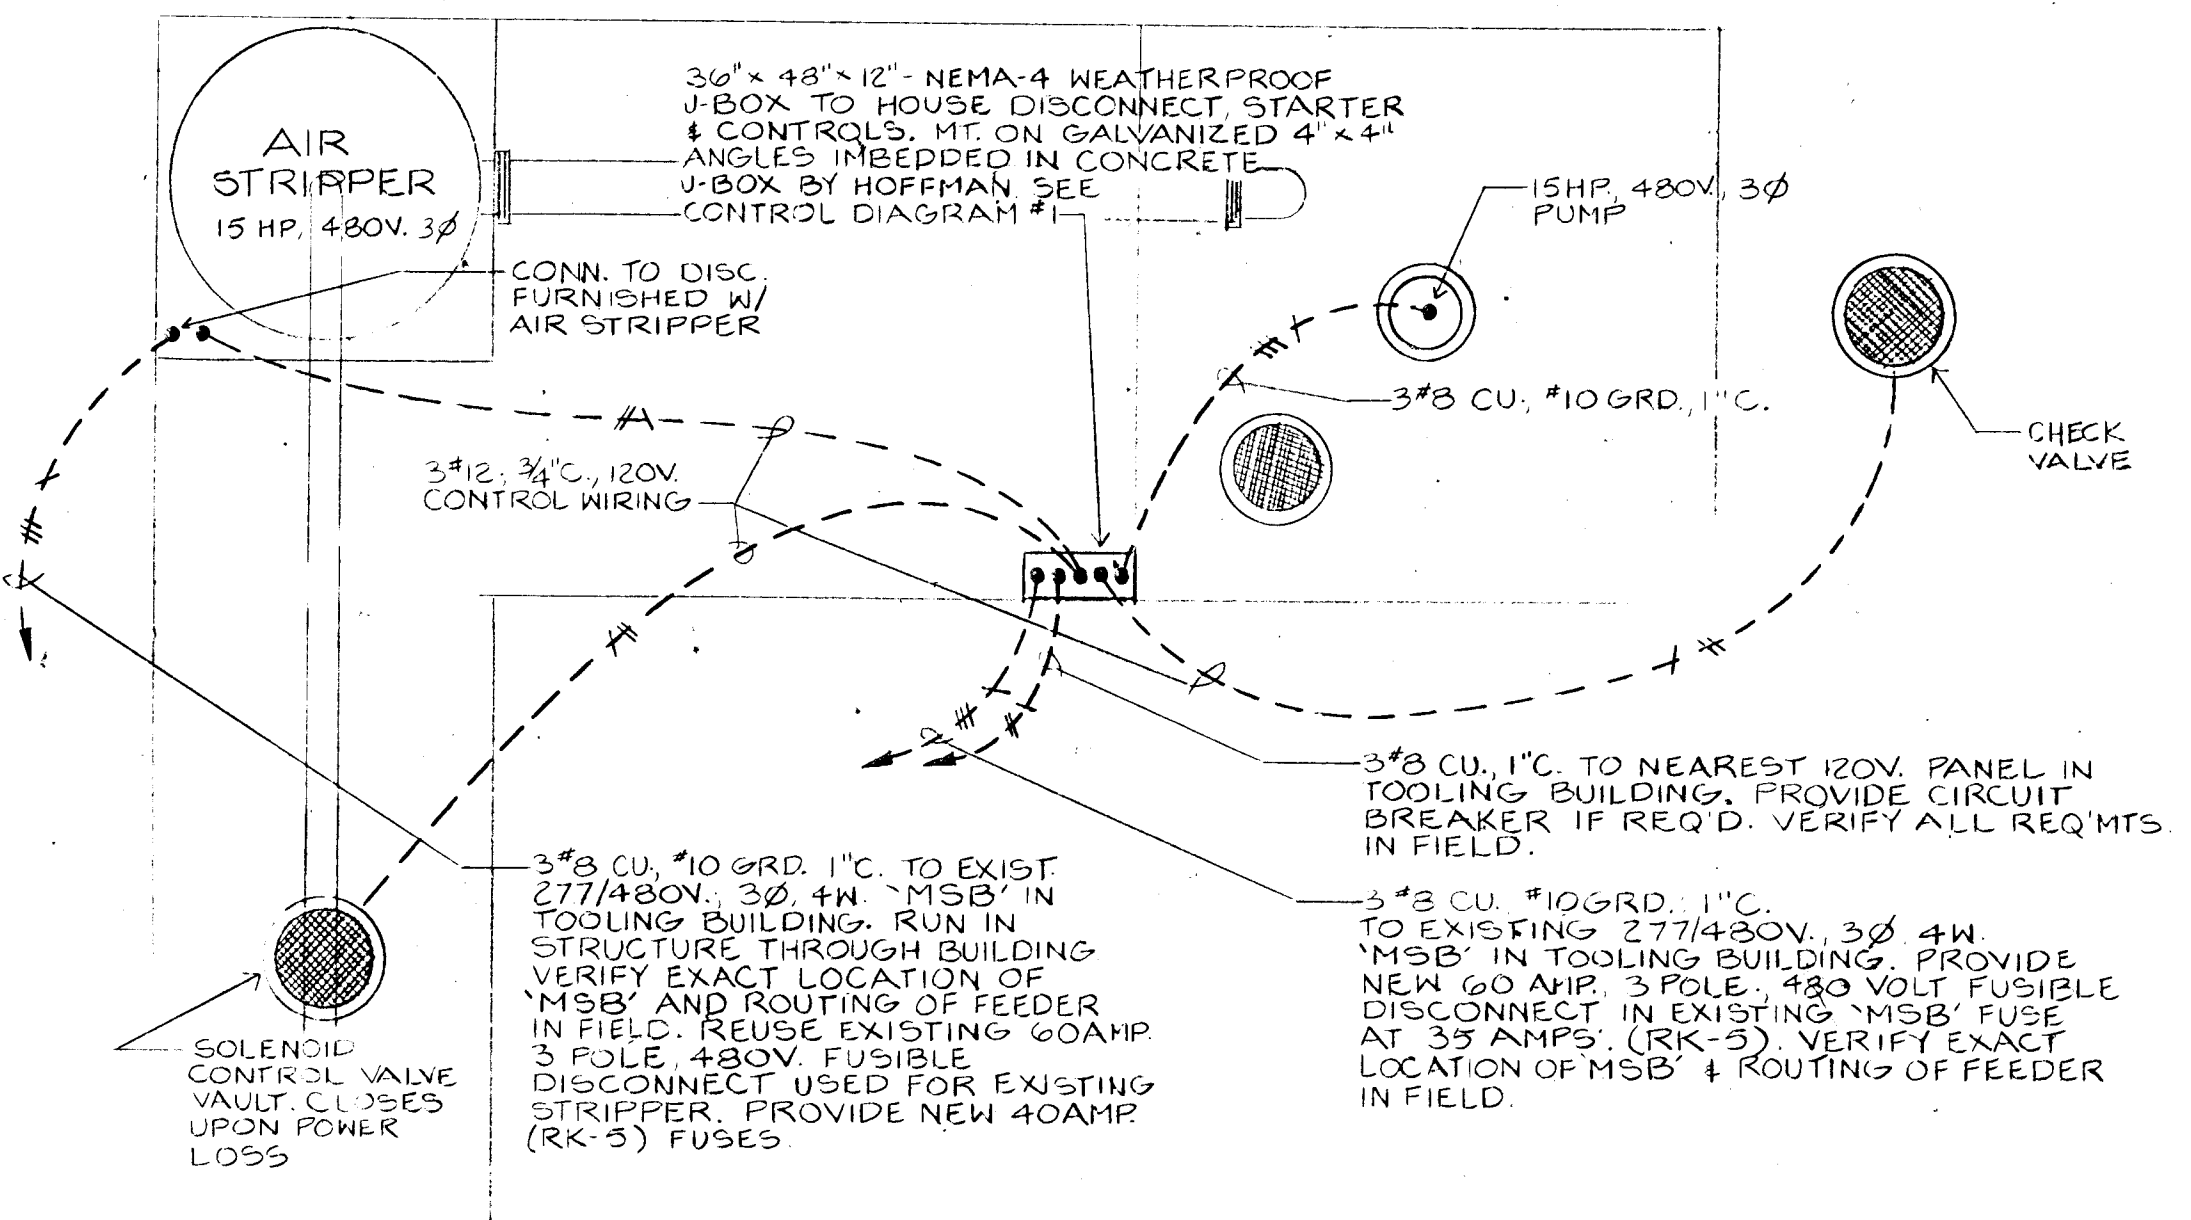 36"x 48"x 12"- NEMA-4 WEATHERPROOF
J-BOX TO HOUSE DISCONNECT, STARTER
& CONTROLS. MT. ON GALVANIZED 4"x 4"
ANGLES IMBEDDED IN CONCRETE
J-BOX BY HOFFMAN SEE
CONTROL DIAGRAM #1
AIR
STRIPPER
15 HP, 480V. 3Ø
15HP., 480V., 3Ø
PUMP
CONN. TO DISC.
FURNISHED W/
AIR STRIPPER
3#8 CU., #10 GRD., 1"C.
CHECK
VALVE
3#12, 3/4"C., 120V.
CONTROL WIRING
3#8 CU., 1"C. TO NEAREST 120V. PANEL IN
TOOLING BUILDING. PROVIDE CIRCUIT
BREAKER IF REQ'D. VERIFY ALL REQ'MTS.
IN FIELD.
3#8 CU., #10 GRD. 1"C. TO EXIST.
277/480V., 3Ø, 4W. 'MSB' IN
TOOLING BUILDING. RUN IN
STRUCTURE THROUGH BUILDING
VERIFY EXACT LOCATION OF
'MSB' AND ROUTING OF FEEDER
IN FIELD. REUSE EXISTING 60AMP.
3 POLE, 480V. FUSIBLE
DISCONNECT USED FOR EXISTING
STRIPPER. PROVIDE NEW 40AMP.
(RK-5) FUSES.
3 #8 CU. #10 GRD., 1"C.
TO EXISTING 277/480V., 3Ø 4W.
'MSB' IN TOOLING BUILDING. PROVIDE
NEW 60 AMP., 3 POLE., 480 VOLT FUSIBLE
DISCONNECT IN EXISTING 'MSB' FUSE
AT 35 AMPS. (RK-5). VERIFY EXACT
LOCATION OF 'MSB' & ROUTING OF FEEDER
IN FIELD.
SOLENOID
CONTROL VALVE
VAULT. CLOSES
UPON POWER
LOSS